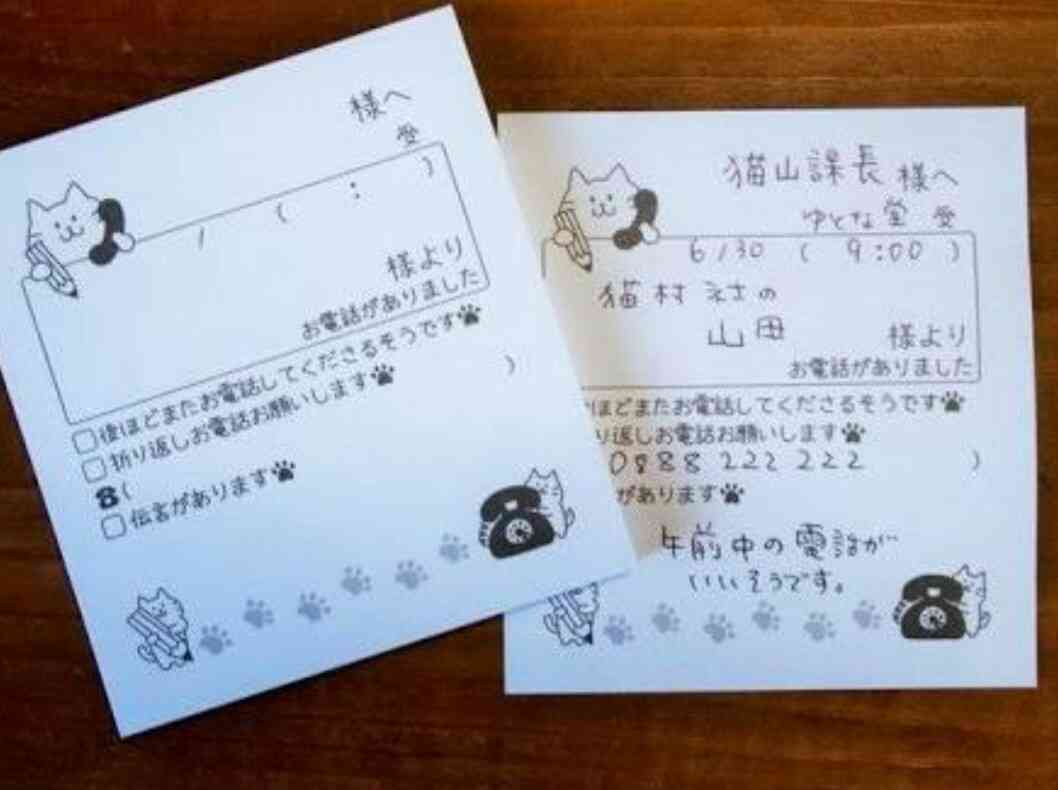 様へ
受
/ ( : )
様より
お電話がありました
□後ほどまたお電話してくださるそうです
□折り返しお電話お願いします
☎( )
□伝言があります
猫山課長 様へ
ゆとな堂 受
6/30 ( 9:00 )
猫村えさの
山田 様より
お電話がありました
ほどまたお電話してくださるそうです
り返しお電話お願いします
0888 222 222 )
があります
午前中の電話が
いいそうです。